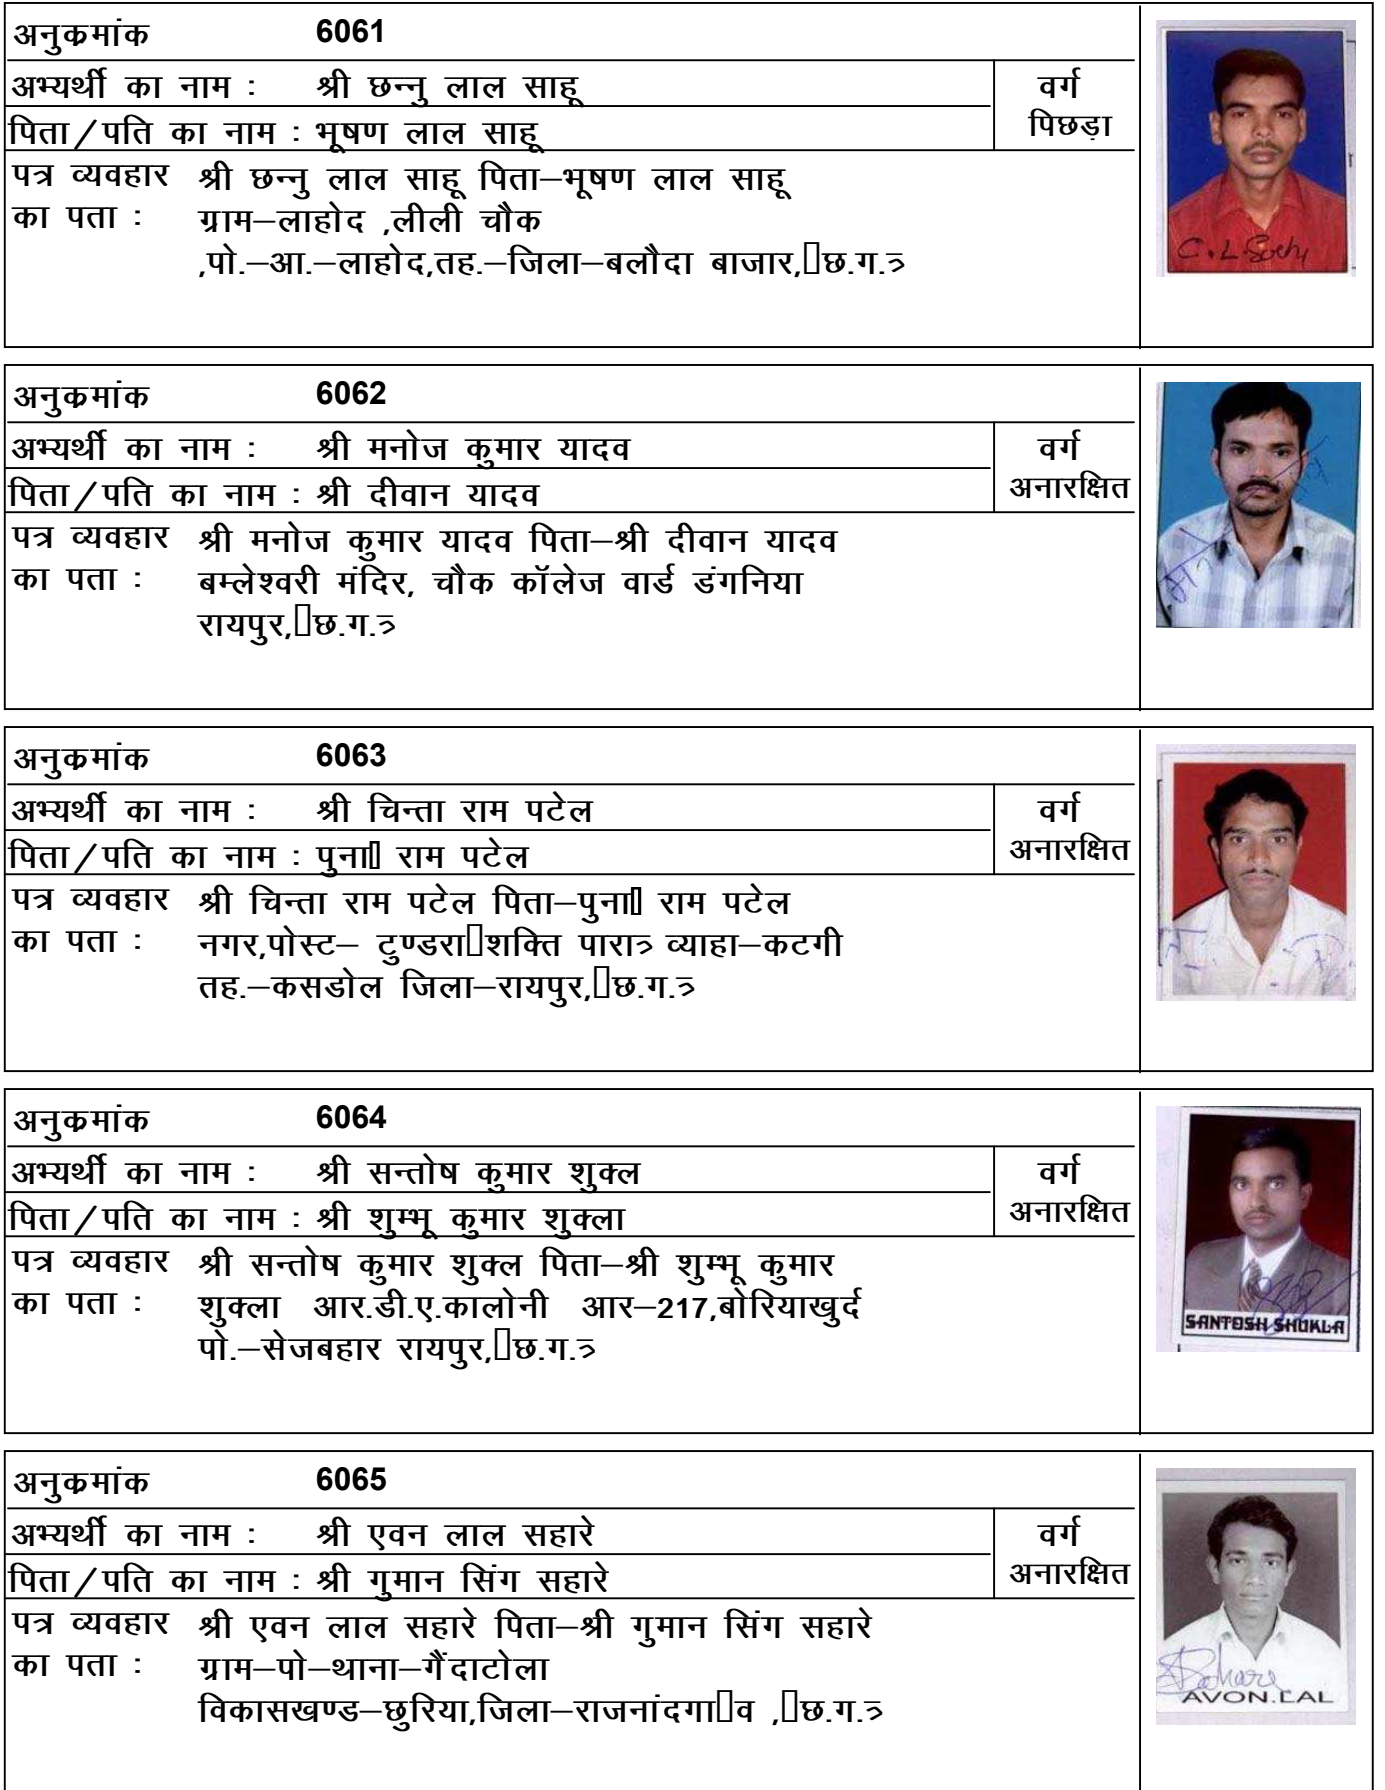 अनुक्रमांक 6061
अभ्यर्थी का नाम : श्री छन्नु लाल साहू वर्ग
पिता/पति का नाम : भूषण लाल साहू पिछड़ा
पत्र व्यवहार श्री छन्नु लाल साहू पिता–भूषण लाल साहू
का पता : ग्राम–लाहोद ,लीली चौक
,पो.–आ.–लाहोद,तह.–जिला–बलौदा बाजार,छ.ग.
C.L.Sahu
अनुक्रमांक 6062
अभ्यर्थी का नाम : श्री मनोज कुमार यादव वर्ग
पिता/पति का नाम : श्री दीवान यादव अनारक्षित
पत्र व्यवहार श्री मनोज कुमार यादव पिता–श्री दीवान यादव
का पता : बम्लेश्वरी मंदिर, चौक कॉलेज वार्ड डंगनिया
रायपुर,छ.ग.
अनुक्रमांक 6063
अभ्यर्थी का नाम : श्री चिन्ता राम पटेल वर्ग
पिता/पति का नाम : राम पटेल अनारक्षित
पत्र व्यवहार श्री चिन्ता राम पटेल राम पटेल
का पता : नगर,पोस्ट– टुण्डरा शक्ति पारा व्याहा–कटगी
तह.–कसडोल जिला–रायपुर,छ.ग.
अनुक्रमांक 6064
अभ्यर्थी का नाम : श्री सन्तोष कुमार शुक्ल वर्ग
पिता/पति का नाम : श्री शुम्भू कुमार शुक्ला अनारक्षित
पत्र व्यवहार श्री सन्तोष कुमार शुक्ल पिता–श्री शुम्भू कुमार
का पता : शुक्ला आर.डी.ए.कालोनी आर–217,बोरियाखुर्द
पो.–सेजबहार रायपुर,छ.ग.
SANTOSH SHUKLA
अनुक्रमांक 6065
अभ्यर्थी का नाम : श्री एवन लाल सहारे वर्ग
पिता/पति का नाम : श्री गुमान सिंग सहारे अनारक्षित
पत्र व्यवहार श्री एवन लाल सहारे पिता–श्री गुमान सिंग सहारे
का पता : ग्राम–पो–थाना–गैंदाटोला
विकासखण्ड–छुरिया,जिला– ,छ.ग.
Sahare
AVON.LAL